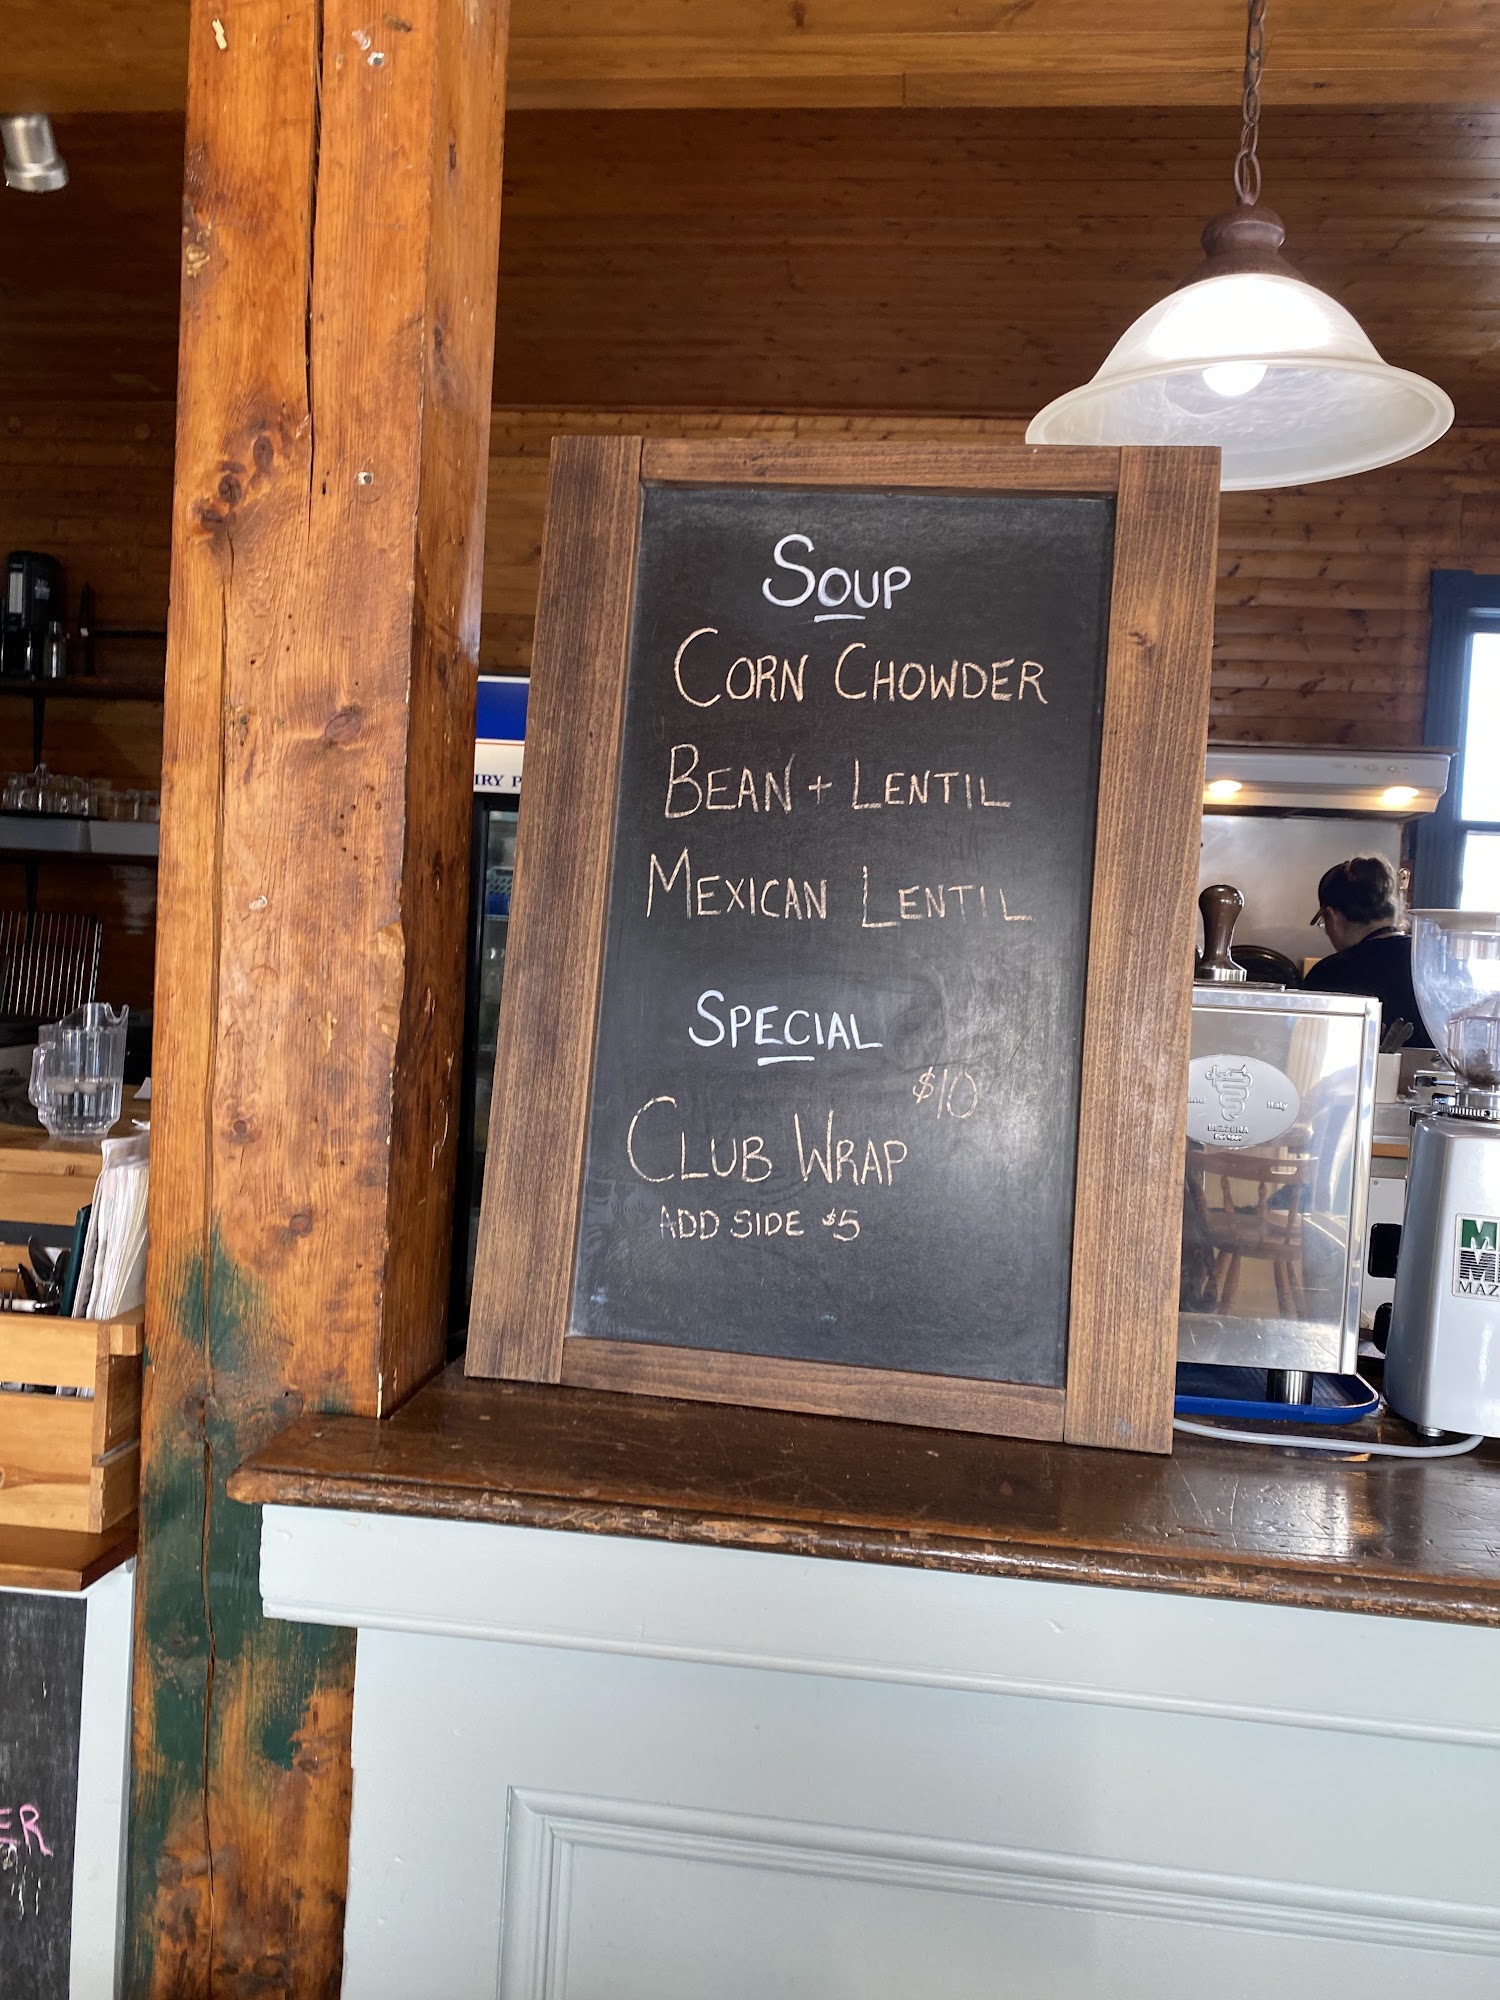 SOUP
CORN CHOWDER
BEAN + LENTIL
MEXICAN LENTIL
SPECIAL
$10
CLUB WRAP
ADD SIDE $5
IRY P
Italy
BEZZERA
MAZ
ER